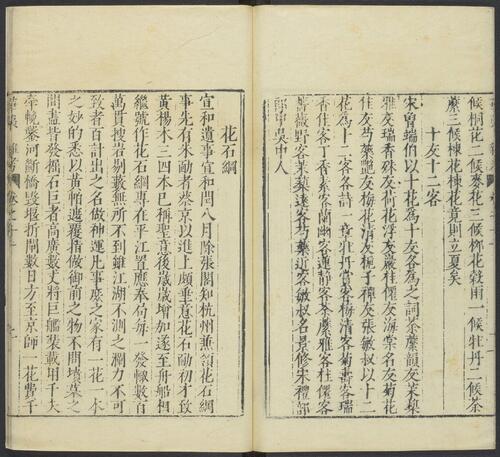 候桐花二候麥花三候柳花穀雨一候牡丹二候荼
䕷三候楝花楝花竟則立夏矣
十友十二客
宋曾端伯以十花為十友各為之詞荼䕷韻友茉莉
雅友瑞香殊友荷花浮友巖桂僊友海棠名友菊花
佳友芍藥艷友梅花清友梔子禪友張敏叔以十二
花為十二客各詩一章牡丹賞客梅清客菊壽客瑞
香佳客丁香素客蘭幽客蓮靜客荼䕷雅客桂僊客
薔薇野客茉莉遠客芍藥近客敏叔名景修宋禮部
郎中吳中人
花石綱
宣和遺事宣和間八月除張閣知杭州兼領花石綱
事先有朱勔者蔡京以進上頗垂意花石勔初才致
黃楊木三四本已稱聖意後歲歲增加遂至舟船相
繼號作花石綱專在平江置應奉局每一發輙數百
萬貫搜岩剔藪無所不到雖江湖不測之淵力不可
致者百計出之名做神運凡事庶之家有一花一木
之妙的悉以黃帕遮覆指做御前之物不問墳墓之
間盡皆發掘石巨者高廣數丈將巨艦裝載用千夫
牽輓鑿河斷橋毀堰折閘數日方至京師一花費千